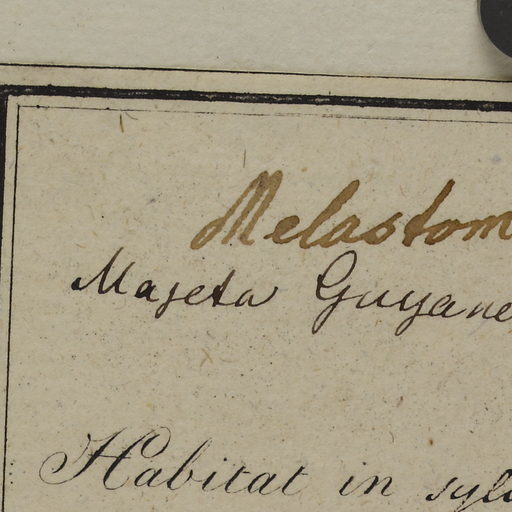 Melastom
Majeta Guyane
Habitat in sylv